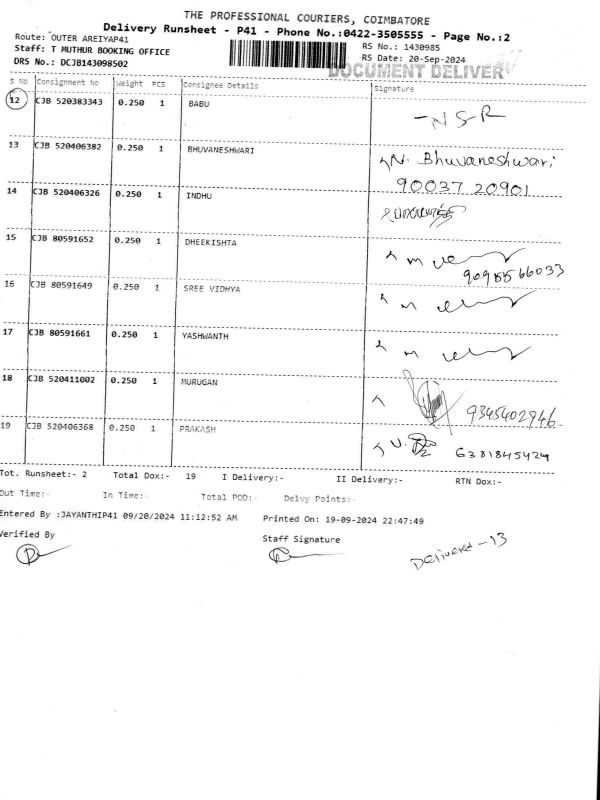 THE PROFESSIONAL COURIERS, COIMBATORE
Delivery Runsheet - P41 - Phone No.:0422-3505555 - Page No.:2
Route: OUTER AREIYAP41
RS No.: 1430985
Staff: T MUTHUR BOOKING OFFICE
RS Date: 20-Sep-2024
DRS No.: DCJB143098502
DOCUMENT DELIVER
S No Consignment No Weight PCS Consignee Details Signature
12 CJB 520383343 0.250 1 BABU
NSR
13 CJB 520406382 0.250 1 BHUVANESHWARI
N. Bhuvaneshwari
90037 20901
14 CJB 520406326 0.250 1 INDHU
15 CJB 80591652 0.250 1 DHEEKISHTA
16 CJB 80591649 0.250 1 SREE VIDHYA
17 CJB 80591661 0.250 1 YASHWANTH
18 CJB 520411002 0.250 1 MURUGAN
9345402946
19 CJB 520406368 0.250 1 PRAKASH
6381845424
Tot. Runsheet:- 2 Total Dox:- 19 I Delivery:- II Delivery:- RTN Dox:-
Out Time:- In Time:- Total POD:- Delvy Points:-
Entered By :JAYANTHIP41 09/20/2024 11:12:52 AM Printed On: 19-09-2024 22:47:49
Verified By
Staff Signature
Delivered - 13